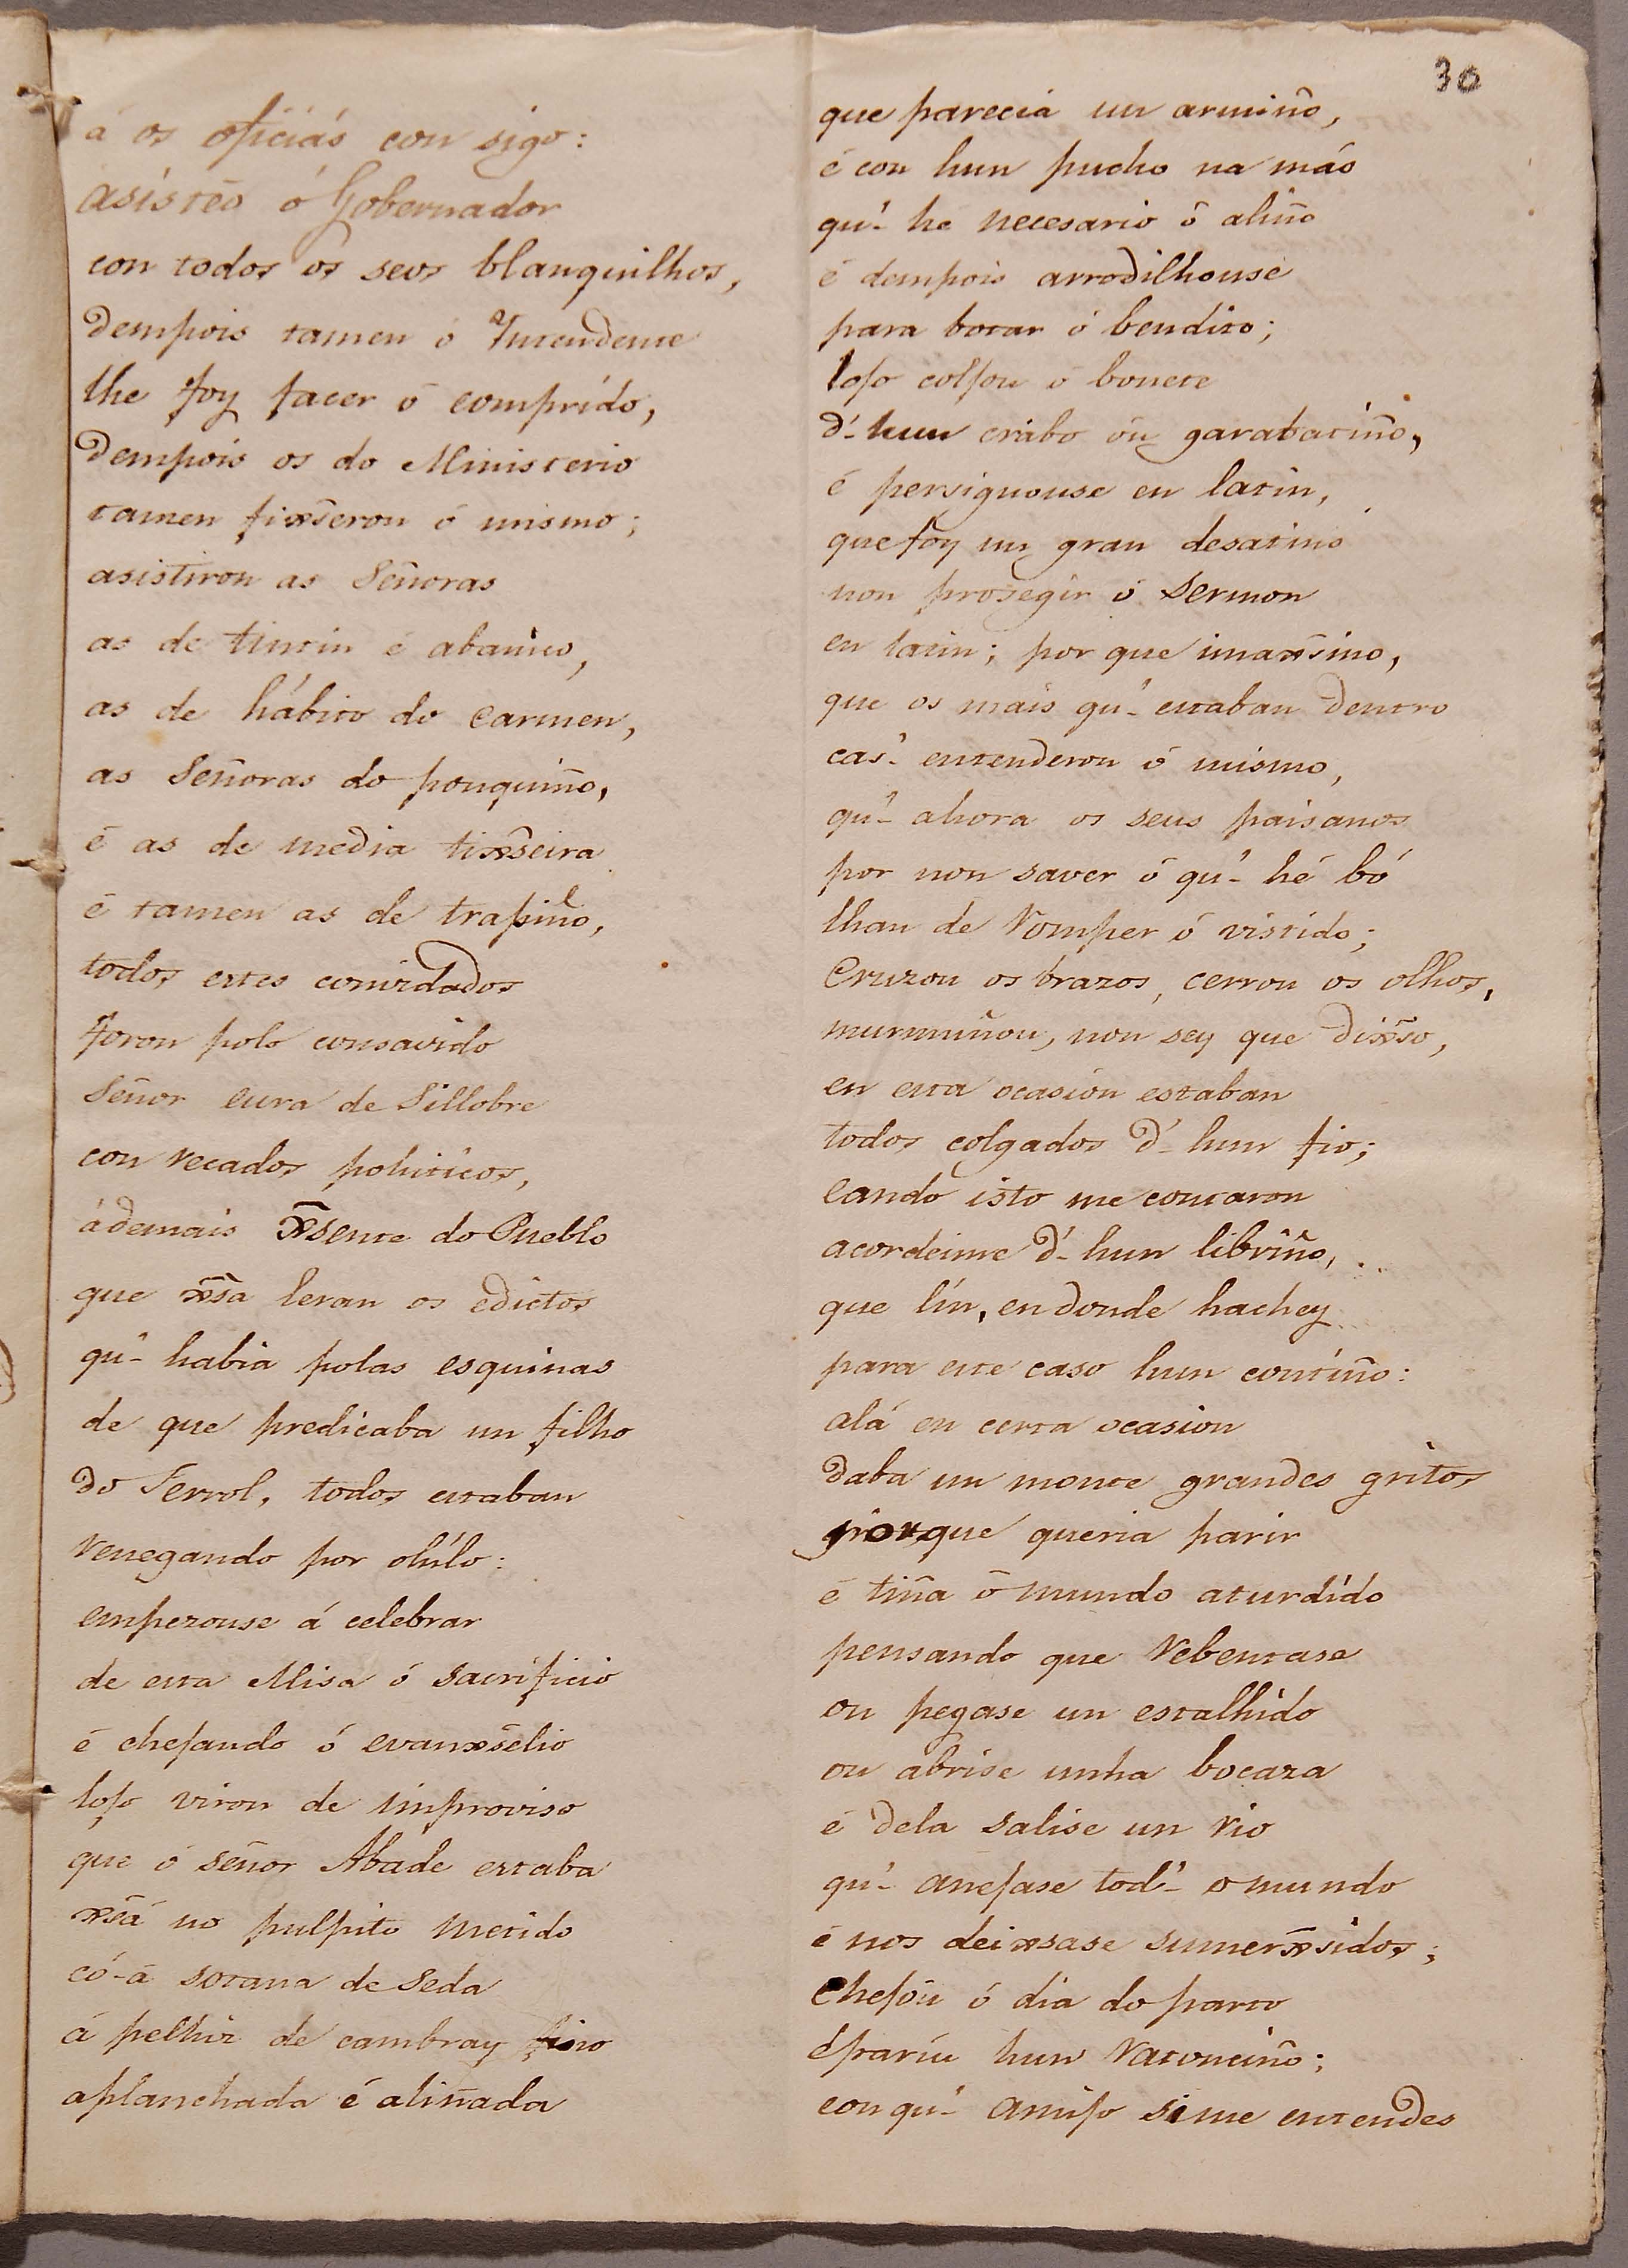 30
á os oficiás con sigo:
asistéo ó Gobernador
con todos os seos blanquilhos,
dempois tamen ó Yntendente
lhe foy facer ó comprido,
Dempois os do Ministerio
tamen fixseron ó mismo;
asistiron as Señoras
as de tintin é abanico,
as de hábito do Carmen,
as Señoras do pouquiño,
é as de media tixseira
é tamen as de trapiño,
todos estes convidados
foron polo consavido
Señor cura de Sillobre
con recados politicos,
ádemais xsente do Pueblo
que xsa leran os edictos
qu'- habia polas esquinas
de que predicaba un filho
do Ferrol, todos estaban
renegando por ohílo:
empezouse á celebrar
de esta Misa ó sacrificio
é chefando ó evanxselio
lofo viron de improviso
que ó señor Abade estaba
xsá no pulpito metido
có-á sotana de Seda
á pelhiz de cambray fino
aplanchada é aliñada
que parecia un armiño,
é con hun pucho na máo
qu'- he necesario ô aliño
é dempois arrodilhouse
para botar ó bendito;
lofo colfou ó bonete
d'- hun crabo óu garabatiño,
é persignouse en latin,
que foy un gran desatino
non prosegir ó sermon
en latin; por que imaxsino,
que os mais qu'- estaban dentro
cas'- entenderon ó mismo,
qu'- ahora os seus paisanos
por non saver ó qu'- hé bó
lhan de romper ó vistido;
Cruzou os brazos, cerrou os olhos,
murmuñou, non sey que dixso,
en esta ocasion estaban
todos colgados d'- hun fio;
cando isto me contaron
acordeime d'- hun libriño,
que lín, en donde hachey
para este caso hun contiño:
alá en certa ocasion
daba un monte grandes gritos
porque queria parir
é tiña ó mundo aturdido
pensando que rebentase
ou pegase un estalhido
ou abrise unha bocaza
é dela salise un rio
qu'- anefase tod'- o mundo
é nos deixsase sumerxsidos;
Chefóu ó dia do parto
é paríu hun ratonciño;
con qu'- amifo si me entendes